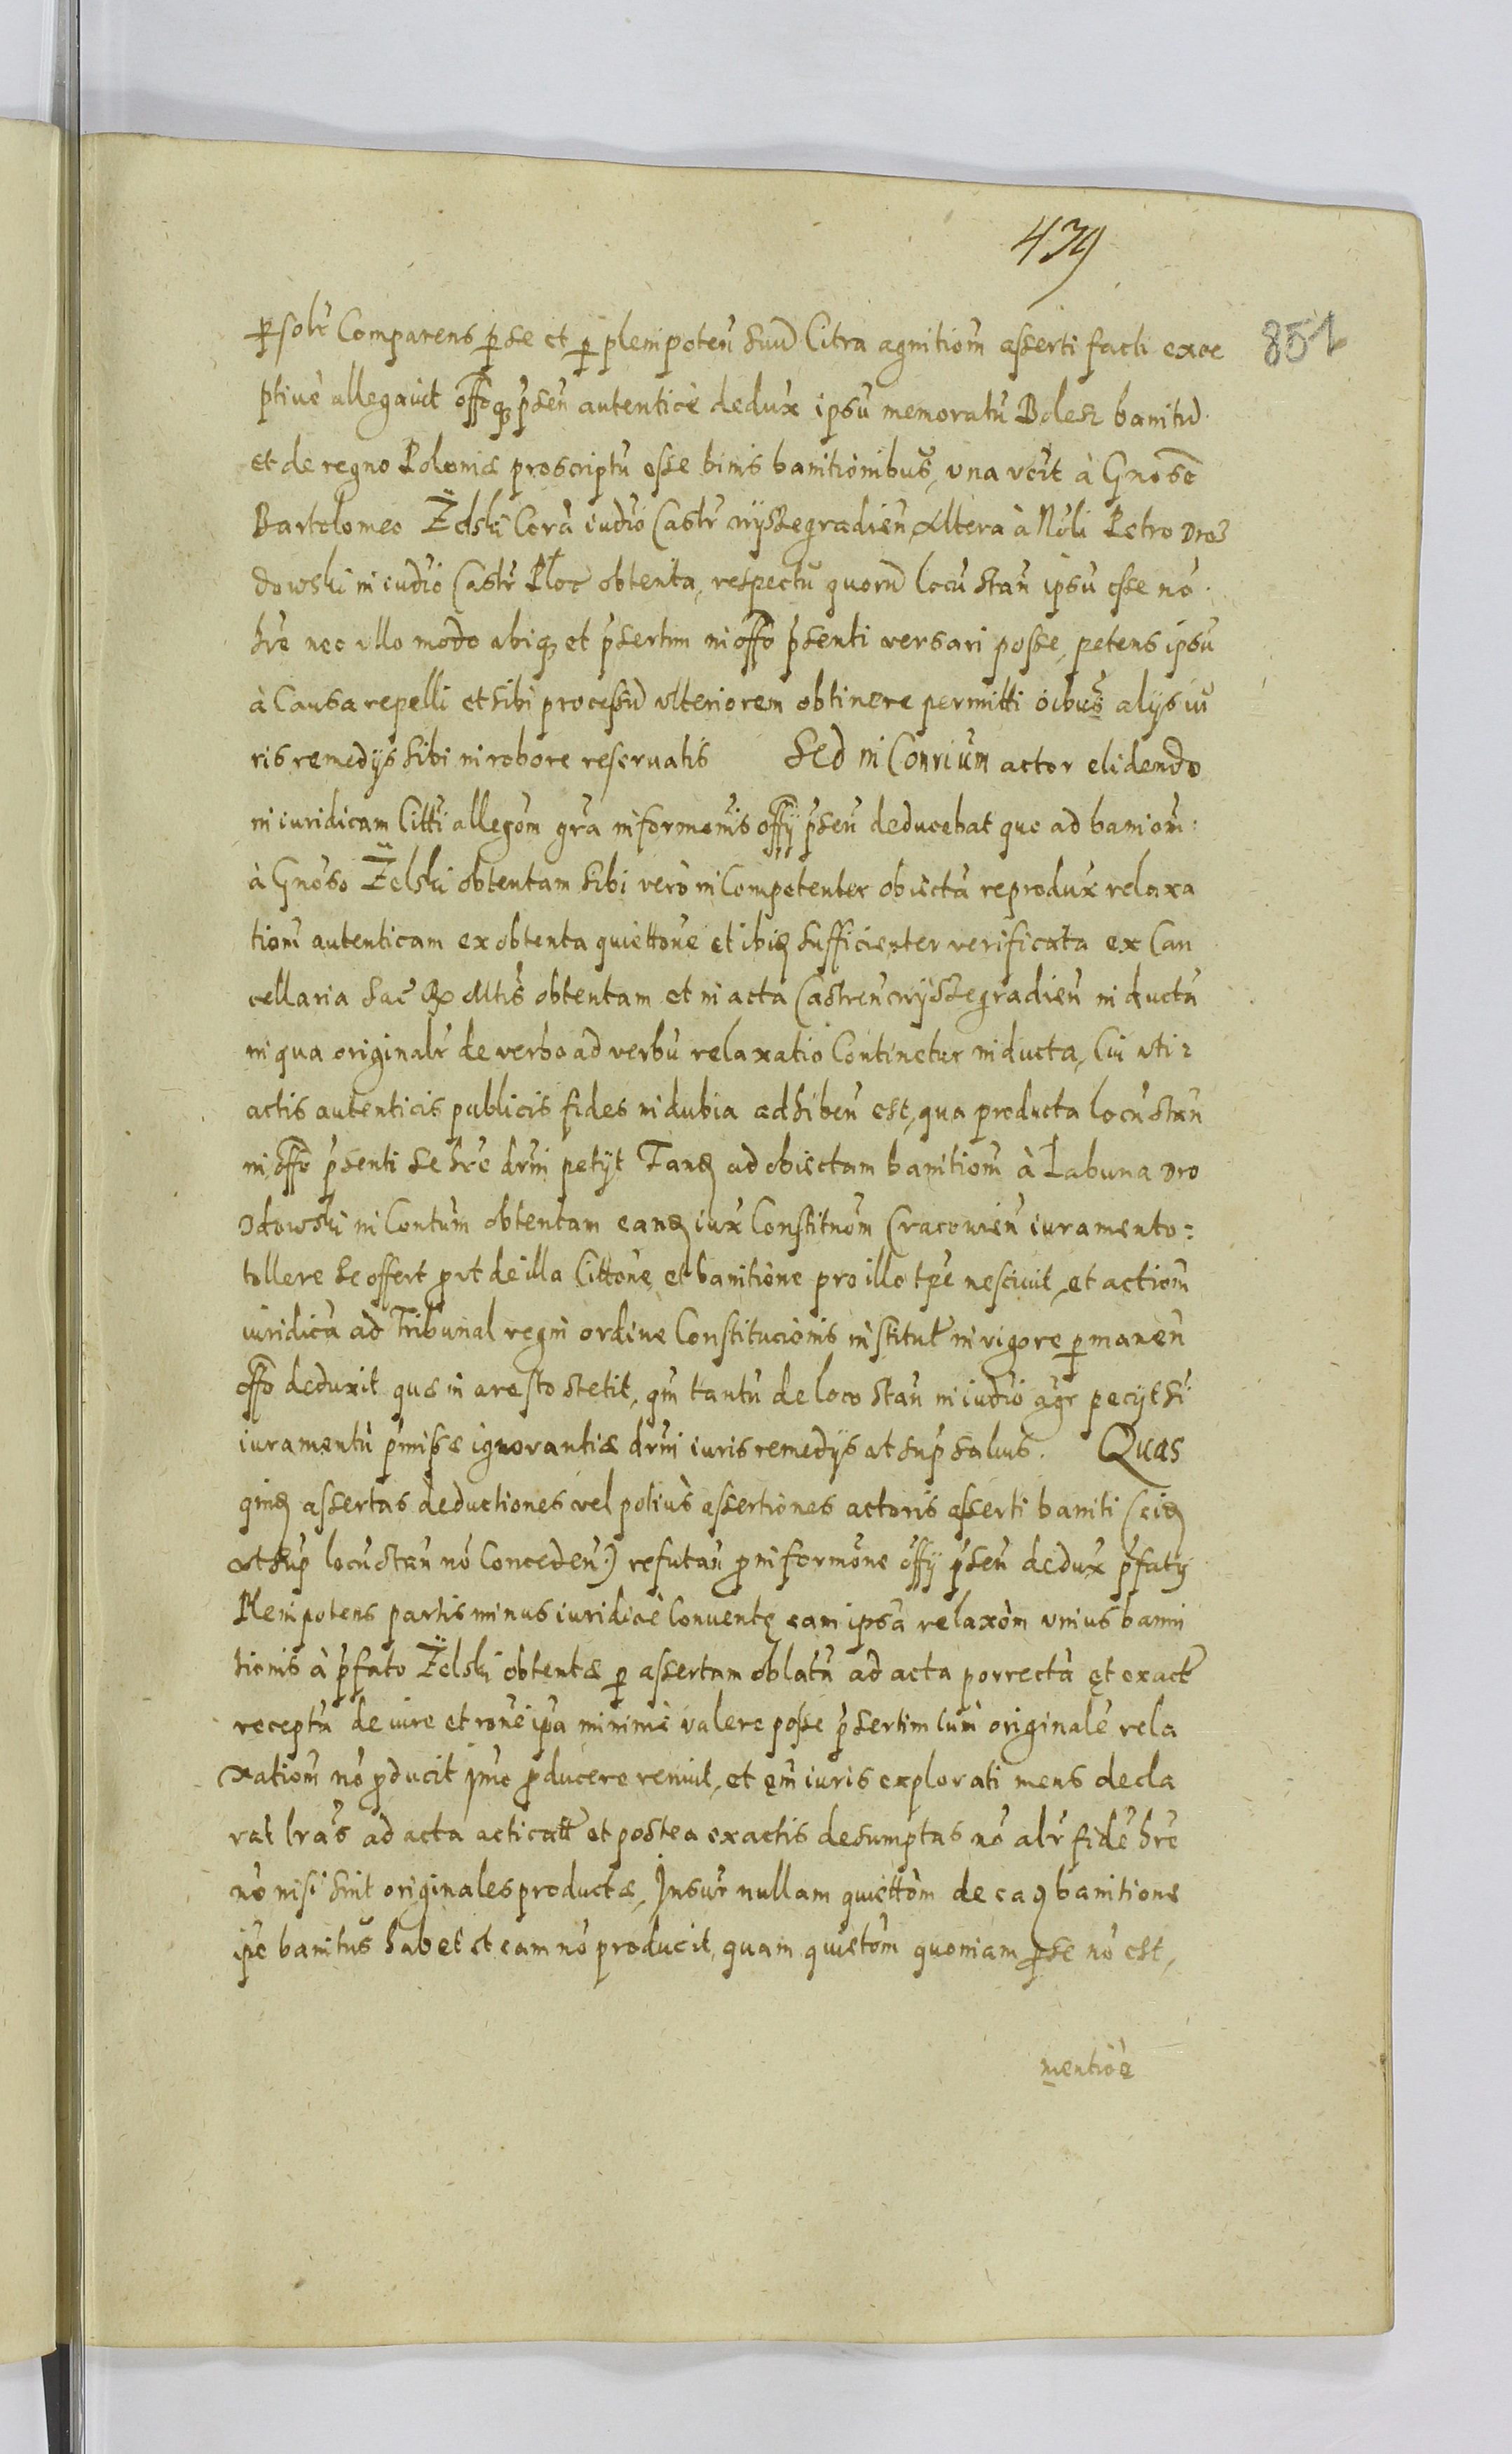 439
851
psolr Comparens p se et p plenipoten̄ suū Citra agnitiom̄ asserti facti exce
ptiuè allegauit offoq, p̄sen̄ autenticè dedux ipsū memoratū Bolesz banitū
et de regno Poloniæ proscriptū esse binis banitionibus, una vcit à Gnoso
Bartolomeo Żelski Corā iudio Castr wyszegradien̄ Altera à Nōli Petro Droz
dowski in iudio Castr Ploc obtenta, respectu quorū locū stan̄ ipsū esse nō
hre nec ullo modo ubiq, et p̄sertim in offo p̄senti versari posse, petens ipsū
à Causa repelli et sibi processū ulteriorem obtinere permitti oibus alijs iu
ris remedijs sibi in robore reseruatis Sed in Conrium actor elidendo
in iuridicam Citti allegom̄ gra informonis offij p̄sen̄ deducebat quo ad baniom̄:
à Gnoso Żelski obtentam sibi verò inCompetenter obiectā reprodux relaxa
tiom̄ autenticam ex obtenta quiettone et ibiē sufficienter verificata ex Can
cellaria Sac R Mtis obtentam et in acta Castren̄ wyszegradien̄ inductā
in qua originalr de verbo ad verbū relaxatio Continetur inducta, Cui uti
actis autenticis publicis fides indubia adhiben̄ est, qua producta locū stan̄
in offo p̄senti se hre drni petijt Tanē ad obiectam banitiom̄ à Labuna Dro
zdowski in Contum obtentam eanē iux Constitnom̄ Cracouien̄ iuramento:
tollere se offert prt de illa Cittone et banitione pro illo tpe nesciuit, et actiom̄
iuridicā ad Tribunal regni ordine Constitucionis institut in rigore p manen̄
offo deduxit quæ in aresto stetit, qm̄ tantū de loco stan̄ in iudio agr petijt si
iuramentū p̄missæ ignorantiæ drni iuris remedijs ut sup saluis. Quas
qmē assertas deductiones vel potiùs assertiones actoris asserti baniti (eiē
ut sup locū stan̄ nō Conceden̄) refutan̄ p informone offij p̄sen̄ dedux p̄faty
Plenipotens partis minus iuridicè Conuentę eam ipsā relaxom̄ unius bani
tionis à p̄fato Żelski obtentæ p assertum oblatū ad acta porrectā et ex act
receptā de iure et rone ipā minimè valere posse p̄sertim cum originalē rela
xatiom̄ nō pducit imo pducere renuit, et em̄ iuris explorati mens decla
rat lras ad acta acticatt et postea ex actis desumptas nō alr fidē hre
nō nisi sint originales productæ, Insur nullam quiettom̄ de eaē banitione
ipe banitus habet et eam nō producit, quam quietom̄ quoniam p se nō est,
mentioē